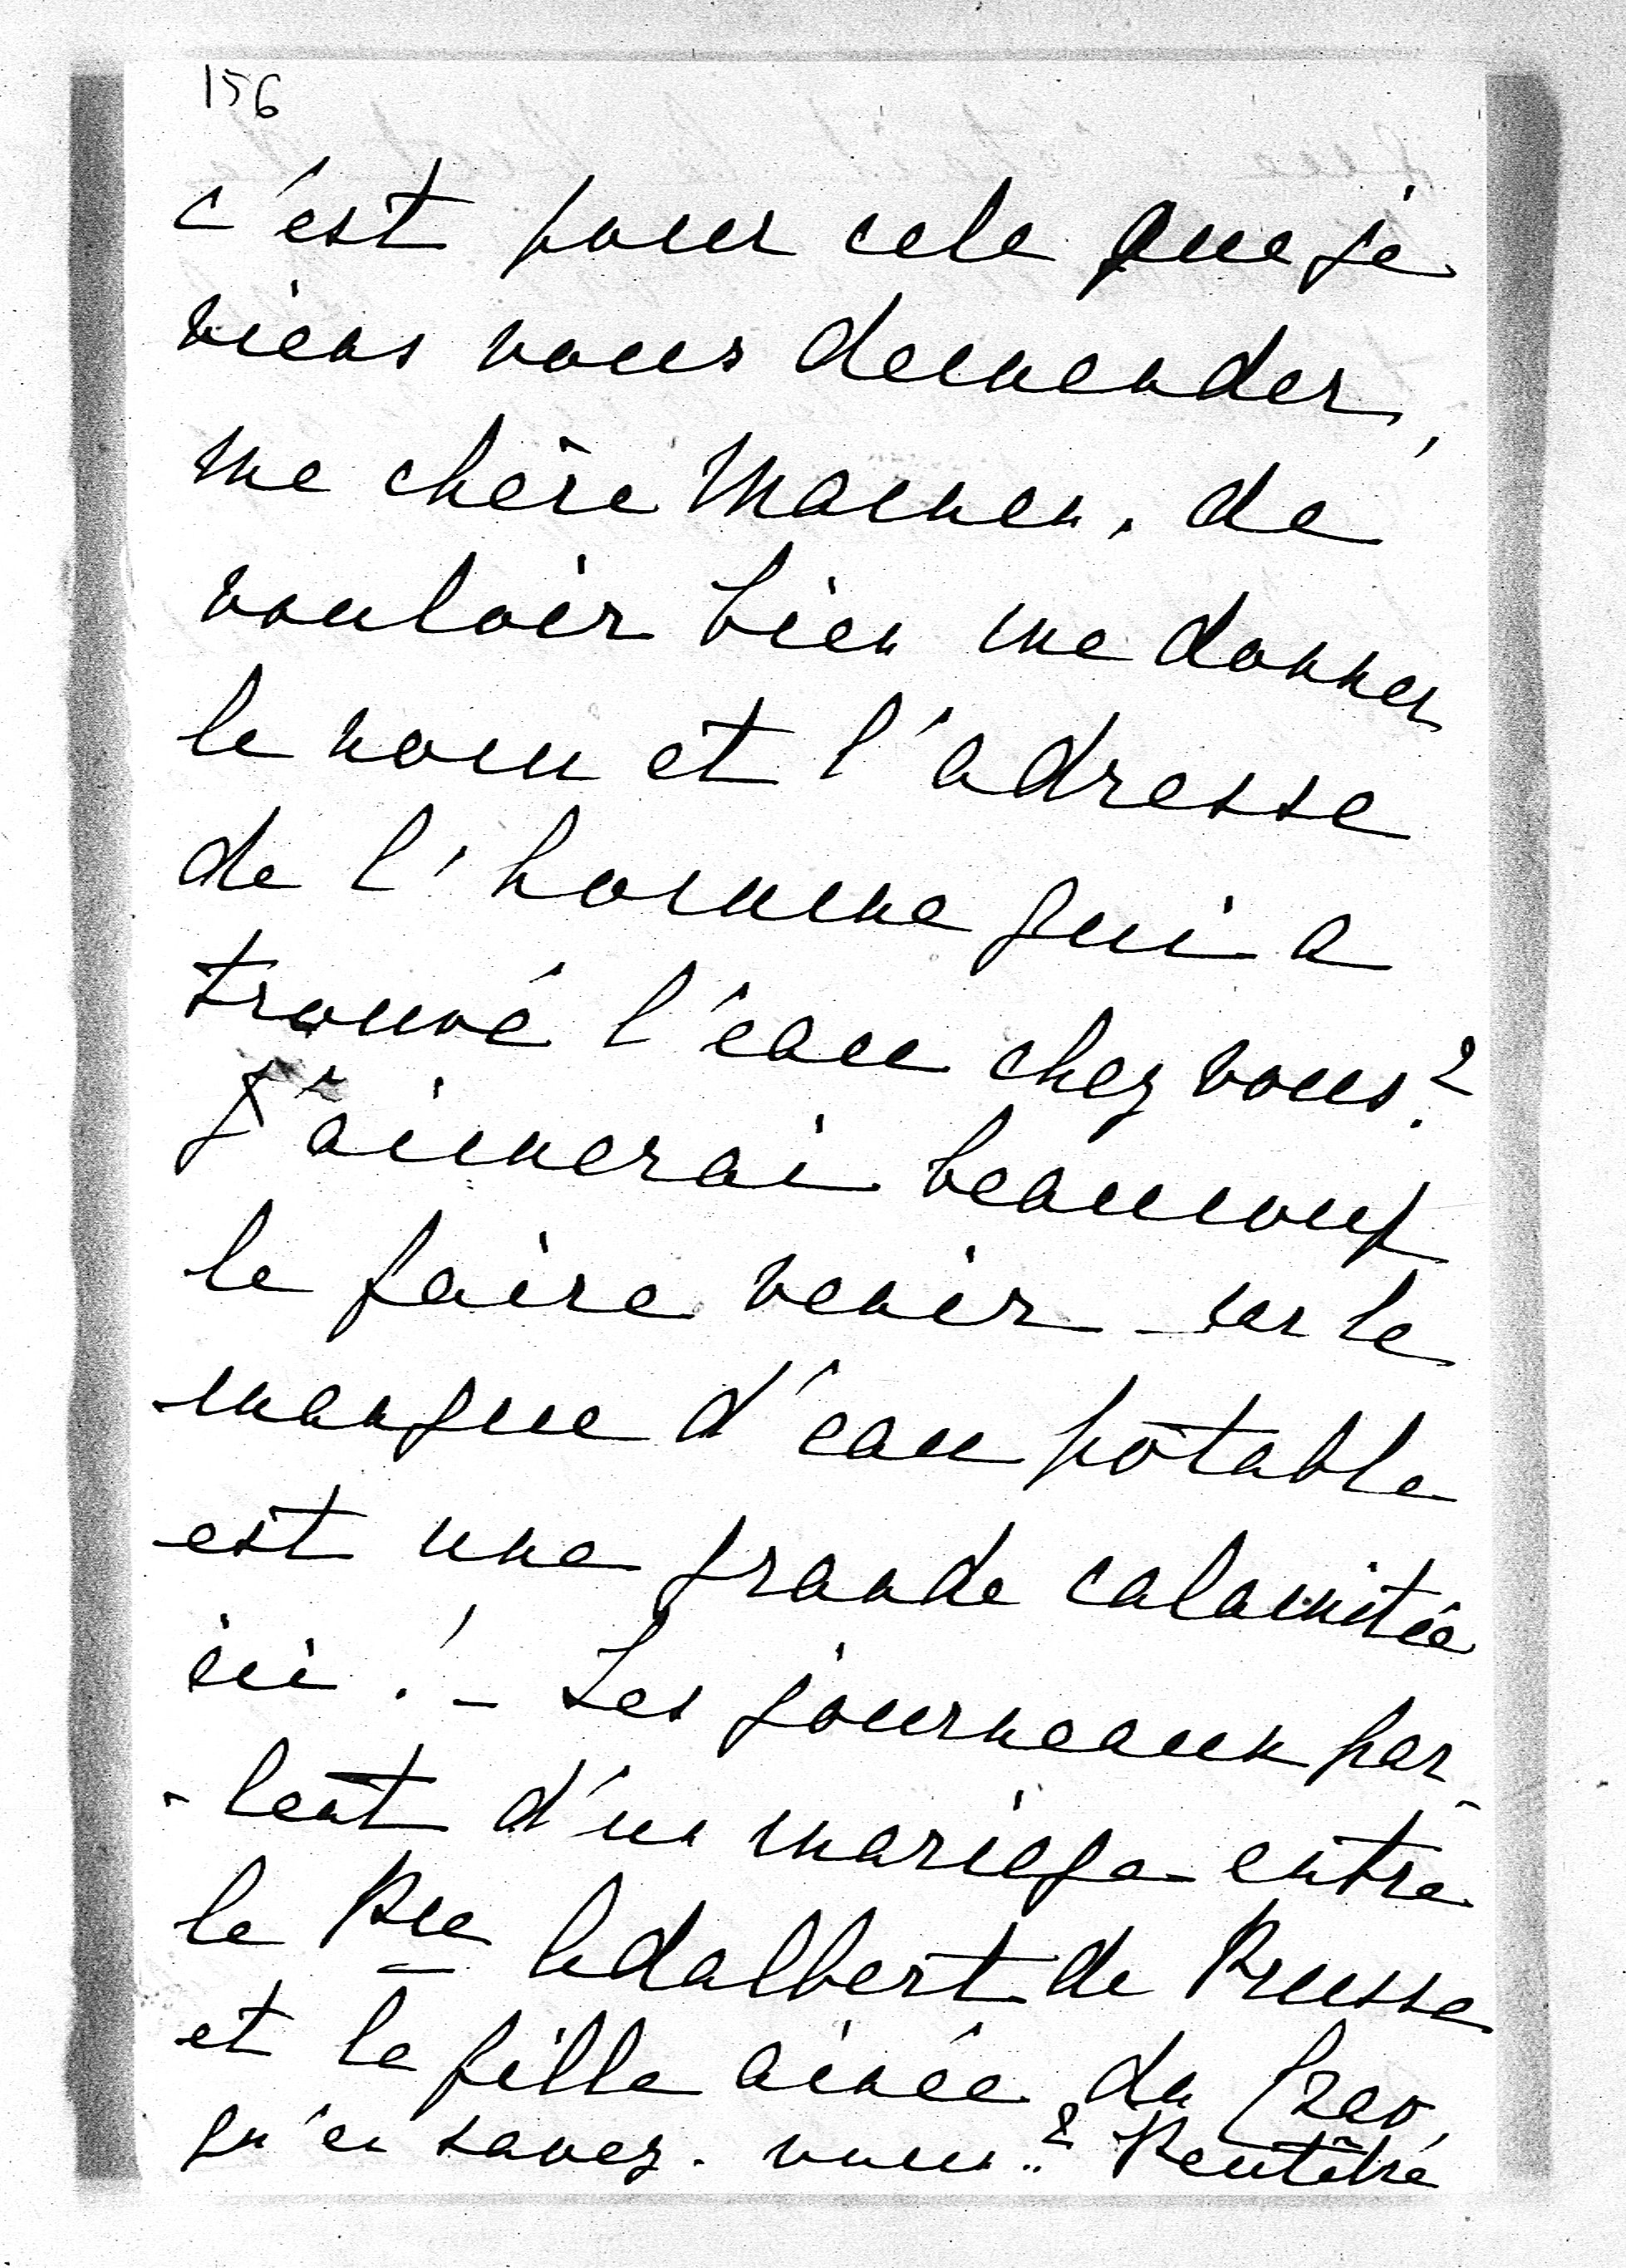 156
c'est pour cela que je
viens vous demander,
ma chère Maman, de
vouloir bien me donner
le nom et l'adresse
de l'homme qui a
trouvé l'eau chez vous?
J'aimerai beaucoup
le faire venir - car le
manque d'eau potable
est une grande calamitée
ici! - Les journeaux par-
-lent d'un mariage entre
le Pce Adalbert de Prusse
et la fille ainée du Czar,
qu'en savez-vous..? Peutêtre